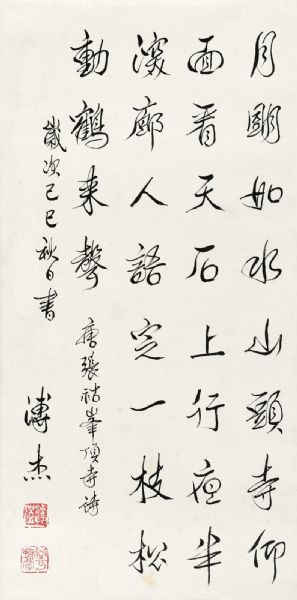 月明如水山頭寺仰
面看天石上行夜半
深廊人語定一枝松
動鶴来聲
唐張祜峯頂寺詩
歲次己巳秋日書
溥杰